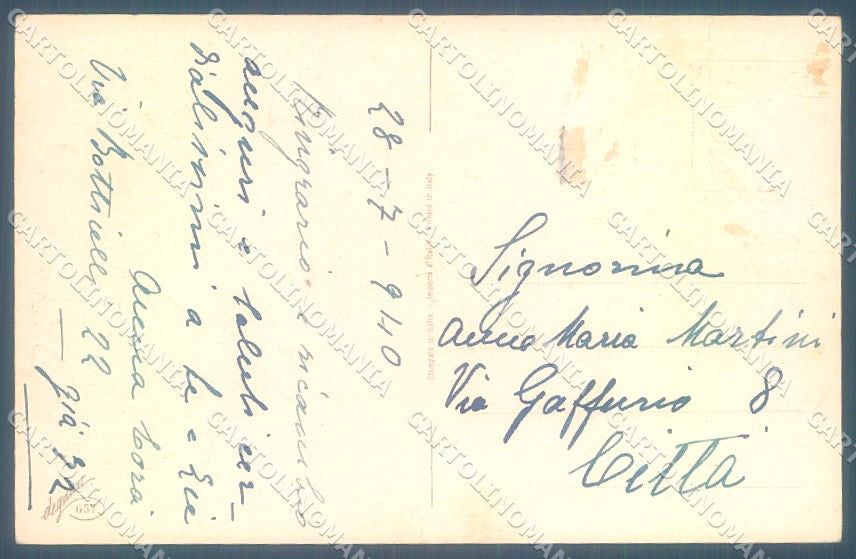 28-7-940
Ringrazio e ricambio
auguri e saluti cor-
dialissimi a te e
Anna
Via Botticelli 22
già 32
Signorina
Anna Maria Martini
Via Gaffurio 8
Città
Stampato in Italia - Imprimé d'Italie - Printed in Italy
degami
657
CARTOLINOMANIA